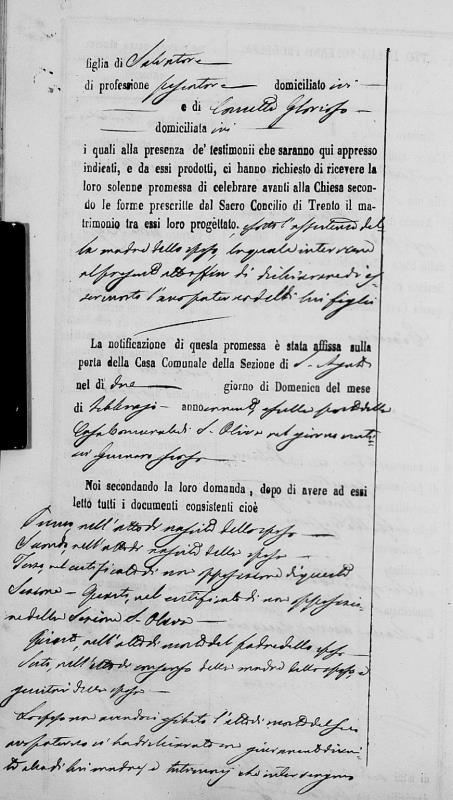 figlia di Salvatore
di professione domiciliato ivi
e di Concetta Glorioso
domiciliata ivi
i quali alla presenza de' testimonii che saranno qui appresso
indicati, e da essi prodotti, ci hanno richiesto di ricevere la
loro solenne promessa di celebrare avanti alla Chiesa secon-
do le forme prescritte dal Sacro Concilio di Trento il ma-
trimonio tra essi loro progettato. sotto l'assistenza del
la madre dello sposo, la quale interviene
al presente atto affin di dichiarare di es
ser morto l'avo paterno del di lui figlio
La notificazione di questa promessa è stata affissa sulla
porta della Casa Comunale della Sezione di S. Agata
nel dì due giorno di Domenica del mese
di Febbrajo anno corrente e sulla porta della
Casa Comunale di S. Oliva nel giorno venti
sei Gennaro scorso
Noi secondando la loro domanda, dopo di avere ad essi
letto tutti i documenti consistenti cioè
Primo, nell'atto di nascita dello sposo
Secondo, nell'atto di nascita della sposa
Terzo, nel certificato di non opposizione di questa
Sezione - Quarto, nel certificato di non opposizio-
ne della Sezione S. Oliva
Quinto, nell'atto di morte del padre dello sposo
Sesto, nell'atto di consenso della madre dello sposo e
genitori della sposa
Lo sposo non avendoci esibito l'atto di morte del suo
avo paterno ci ha dichiarato con giuramento
la di lui madre, e testimonj che intervengono